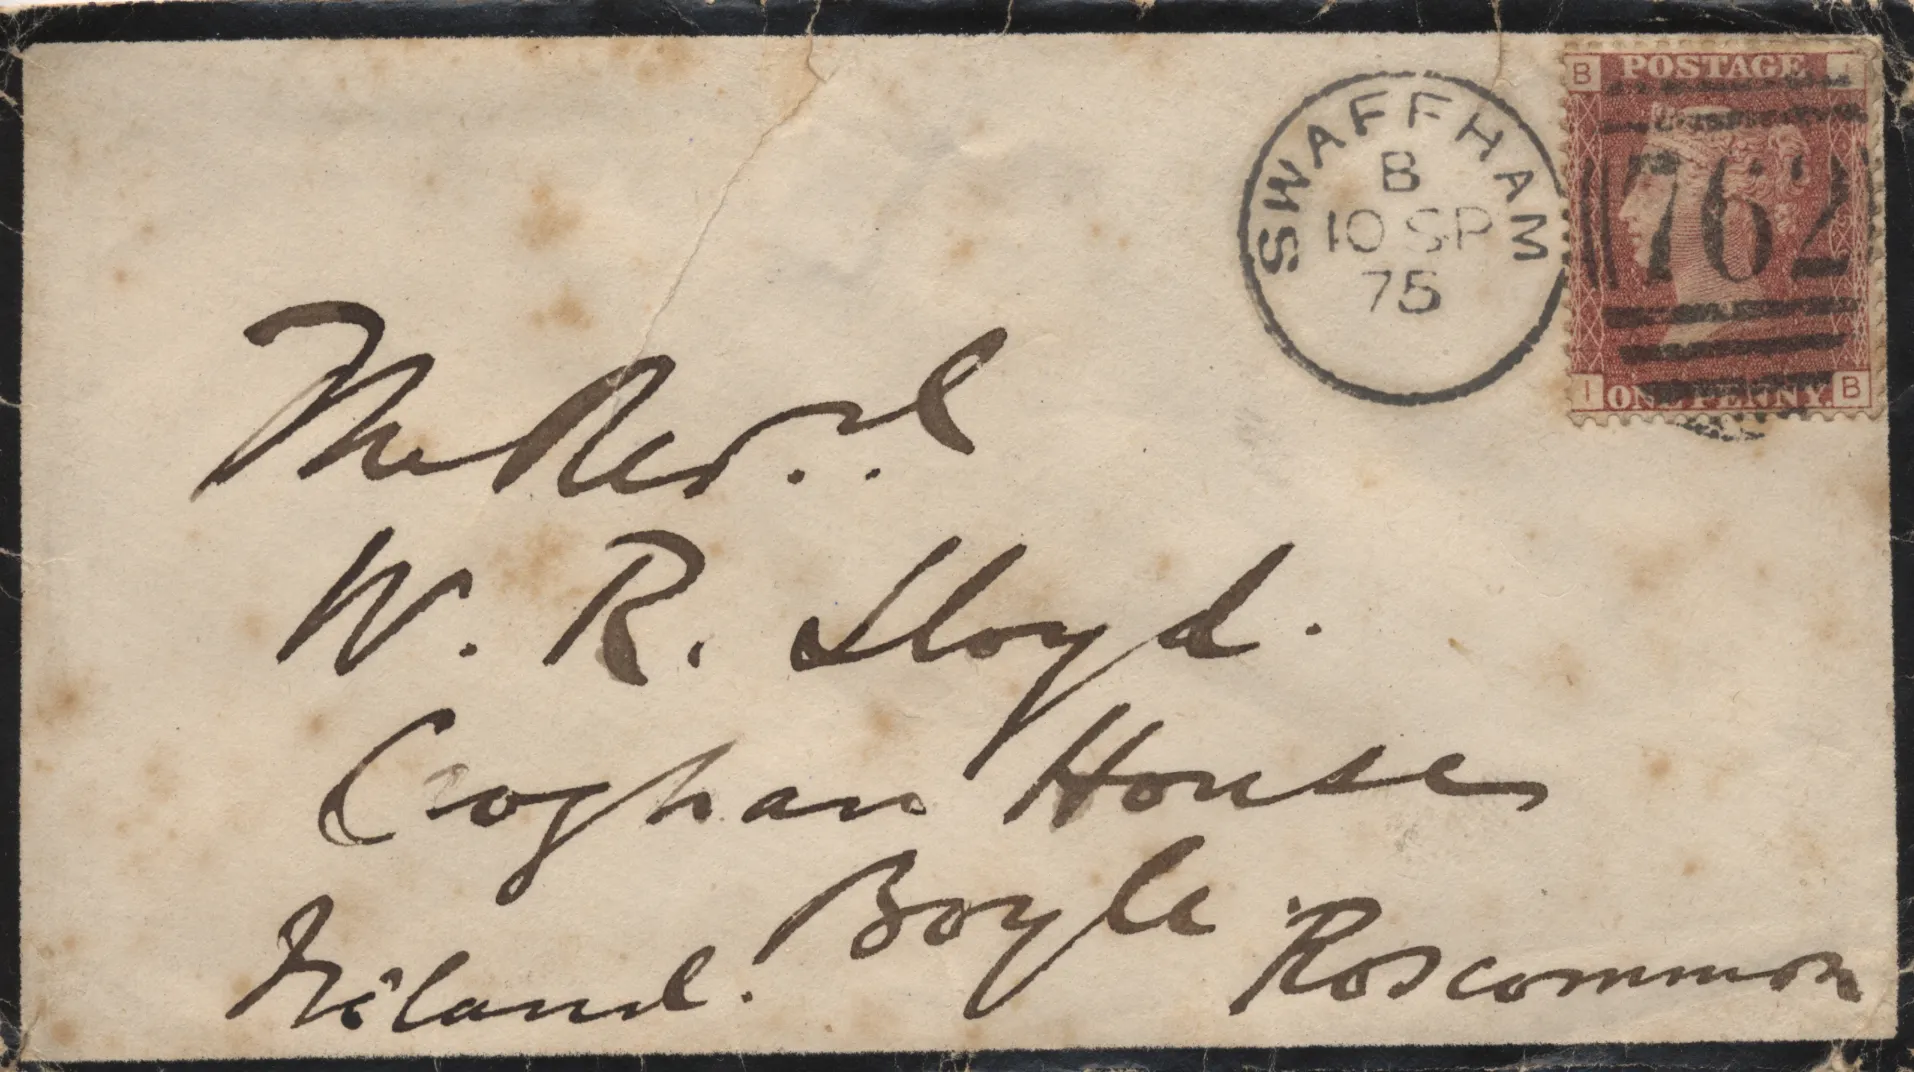 SWAFFHAM
B
10 SP
75
B POSTAGE I
762
I ONE PENNY. B
The Rev.d
W. R. Lloyd.
Croghan House
Boyle
Ireland. Roscommon